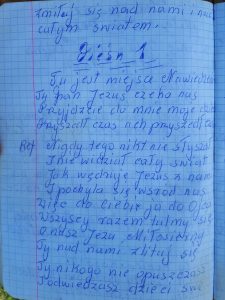 zmiłuj się nad nami i nad
całym światem.
Pieśń 1
Tu jest miejsce Nawiedzenia
Tu pan Jezus czeka nas
Przyjdźcie do mnie moje
Przyszedł czas
Ref Nigdy tego nikt nie słyszał
I nie widział cały świat
Jak wędruje Jezus z nami
I pochyla się wśród nas
Więc do Ciebie ja do Ojca
Wszyscy razem tulmy się
O nasz Jezu Miłosierny
Ty nad nami zlituj się
Ty nikogo nie opuszczasz
Podwiedzasz dzieci swe